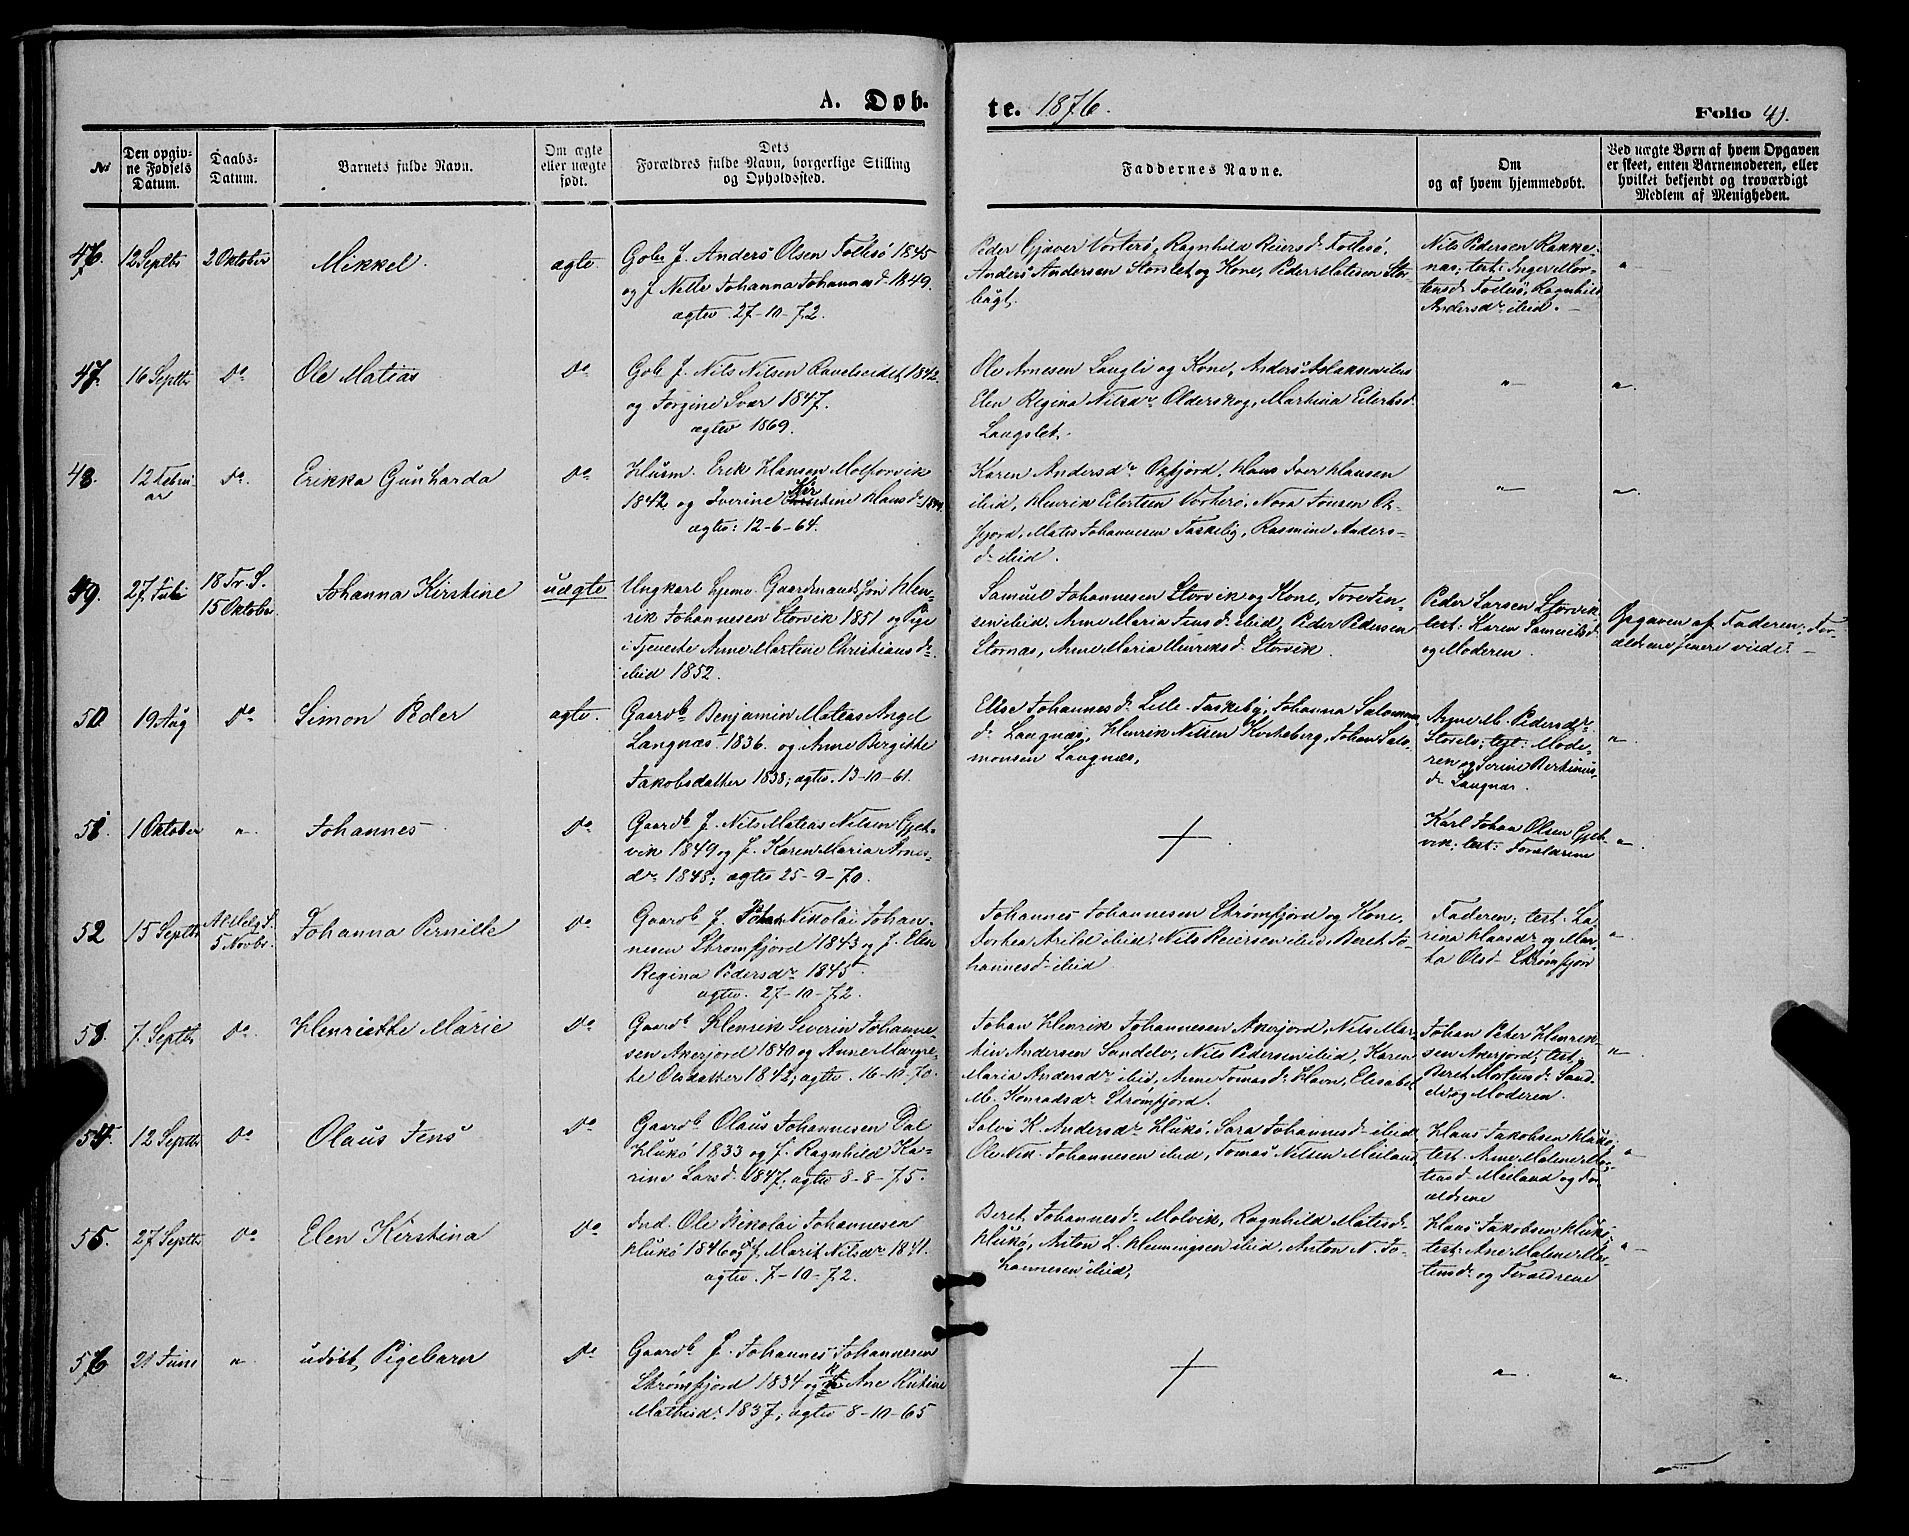 A. Døb.
te. 1876.
Folio 41.
No
Den opgiv-
ne Fødsels
Datum.
Daabs-
Datum.
Barnets fulde Navn.
Om ægte
eller uægte
født.
Dets
Forældres fulde Navn, borgerlige Stilling
og Opholdssted.
Faddernes Navne.
Om
og af hvem hjemmedøbt.
Ved uægte Børn af hvem Opgaven
er skeet, enten Barnemoderen, eller
hvilket bekjendt og troværdigt
Medlem af Menigheden.
46. 12 Septbr 2 Oktober Mikkel. ægte.
Gbr f. Anders Olsen Follesö 1845
og f. Nelle Johanna Johannesd. 1849.
ægtev. 27-10-72.
Peder Gjæver Vorterö, Ragnhild Reiersd. Follesö,
Anders Andersen Storslet og Kone, Peder Matisen Stor-
bugt.
Nils Pedersen Rakke-
næs; test: Inger Mor-
tensd. Follesö, Ragnhild
Andersdr. ibid. "
47. 16 Septbr Do Ole Matias Do
Gbr f. Nils Nilsen Ravelseidet 1842.
og Jorgine Ivar 1847.
ægtev 1869.
Ole Arnesen Langli og Kone, Anders Aslaksen ibid
Elen Regina Nilsdr. Olderskog, Martina Eilertsd.
Langslet. " "
48. 12 Febru-
ar Do. Erikka Gunharda Do
Husm. Erik Hansen Molforvik
1842 og Iverine Kirstine Hansd. 1844
ægtev: 12-6-64.
Karen Andersdr. Oxfjord, Hans Iver Hansen
ibid, Henrik Eilertsen Vorterö, Nora Jonsen Ox-
fjord, Matis Johannesen Taskeby, Rasmine Anders-
d. ibid. " "
49. 27 Juli 18 Tr. S.
15 Oktober Johanna Kirstine uægte
Ungkarl hjemv. Gaardmandssøn Hen-
rik Johannesen Storvik 1851 og Pige
i Tjeneste Anne Martine Christiansdr.
ibid 1852.
Samuel Johannesen Storvik og Kone, Tore Jen-
sen ibid, Anne Maria Jensd. ibid, Peder Pedersen
Stornæs, Anne Maria Henriksd. Storvik.
Peder Larsen Storvik
test: Karen Samuelsd.
og Moderen.
Opgaven af Faderen; For-
ældrene senere viede.
50. 19 Aug Do Simon Peder ægte.
Gaardb. Benjamin Matias Angel
Langnæs 1836. og Anne Bergitte
Jakobsdatter 1838; ægtev. 13-10-61.
Elise Johannesd. Lille-Taskeby, Johanna Salomons-
d. Langnæs, Henrik Nilsen Kirkeberg, Johan Salo-
monsen Langnæs,
Anne M. Pedersdr.
test: Mode-
ren og Serine Bertinus-
d. Langnæs. "
51. 1 Oktober " Johannes Do
Gaardb. f. Nils Matias Nilsen Gjøv-
vik 1849 og f. Karen Maria Arnes-
dr. 1848; ægtev 25-9-70.
Karl Johan Olsen Gjøv-
vik; test: Forældrene "
52 15 Septbr All. Helg. S.
5 Novbr. Johanna Pernille Do
Gaardb f. Johan Nikolai Johan-
nesen Strömfjord 1843 og f. Elen
Regina Pedersdr. 1845.
ægtev. 27-10-72.
Johannes Johannesen Strömfjord og Kone,
Dorthea Arild ibid, Nils Reiersen ibid, Beret Jo-
hannesd. ibid
Faderen; test: La-
rina Hansdr. og Mar-
ta Olsd. Strömfjord "
53. 7. Septbr Do. Henriette Marie Do
Gaardb. Henrik Severin Johanne-
sen Akerjord 1840 og Anne Margre-
te Olsdatter 1842; ægtev. 16-10-70.
Johan Henrik Johannesen Akerjord, Nils Mar-
tin Andersen Sandelv, Nils Pedersen ibid, Karen
Maria Andersdr. ibid, Anne Tomasd. Havn, Elisabet
M. Konradsdr. Strömfjord.
Johan Peter Henrik-
sen Akerjord; test,
Beret Mortensd. Sand-
elv og Moderen. "
54. 12 Septbr Do Olaus Jens Do
Gaardb Olaus Johannesen Dal
Hukö 1833 og f. Ragnhild Ka-
rine Larsd. 1847; ægtev 8-8-75.
K. Andersdr. Hukö, Sara Johannesd. ibid
Ole Nik. Johannesen ibid, Tomas Nilsen Meiland,
Hans Jakobsen Hukö;
test. Anne Malene Mor-
tensd. Meiland og For-
ældrene "
55. 27 Septbr Do Elen Kirstina Do
Ind. Ole Nikolai Johannesen
Hukö 1846 og f. Marit Nilsdr. 1841.
ægtev. 7-10-72.
Beret Johannesd. Molvik, Ragnhild Matisd.
Hukö, Anton L. Henningsen ibid, Anton N. Jo-
hannesen ibid,
Hans Jakobsen Hukö;
test: Ane Malene Mor-
tensd. og Forældrene "
56 21 Juni " udöbt Pigebarn Do
Gaardb f. Johannes Johannesen
Strömfjord 1834 og Ane Kristine
Mathisdr. 1837; ægtev 8-10-65
" "